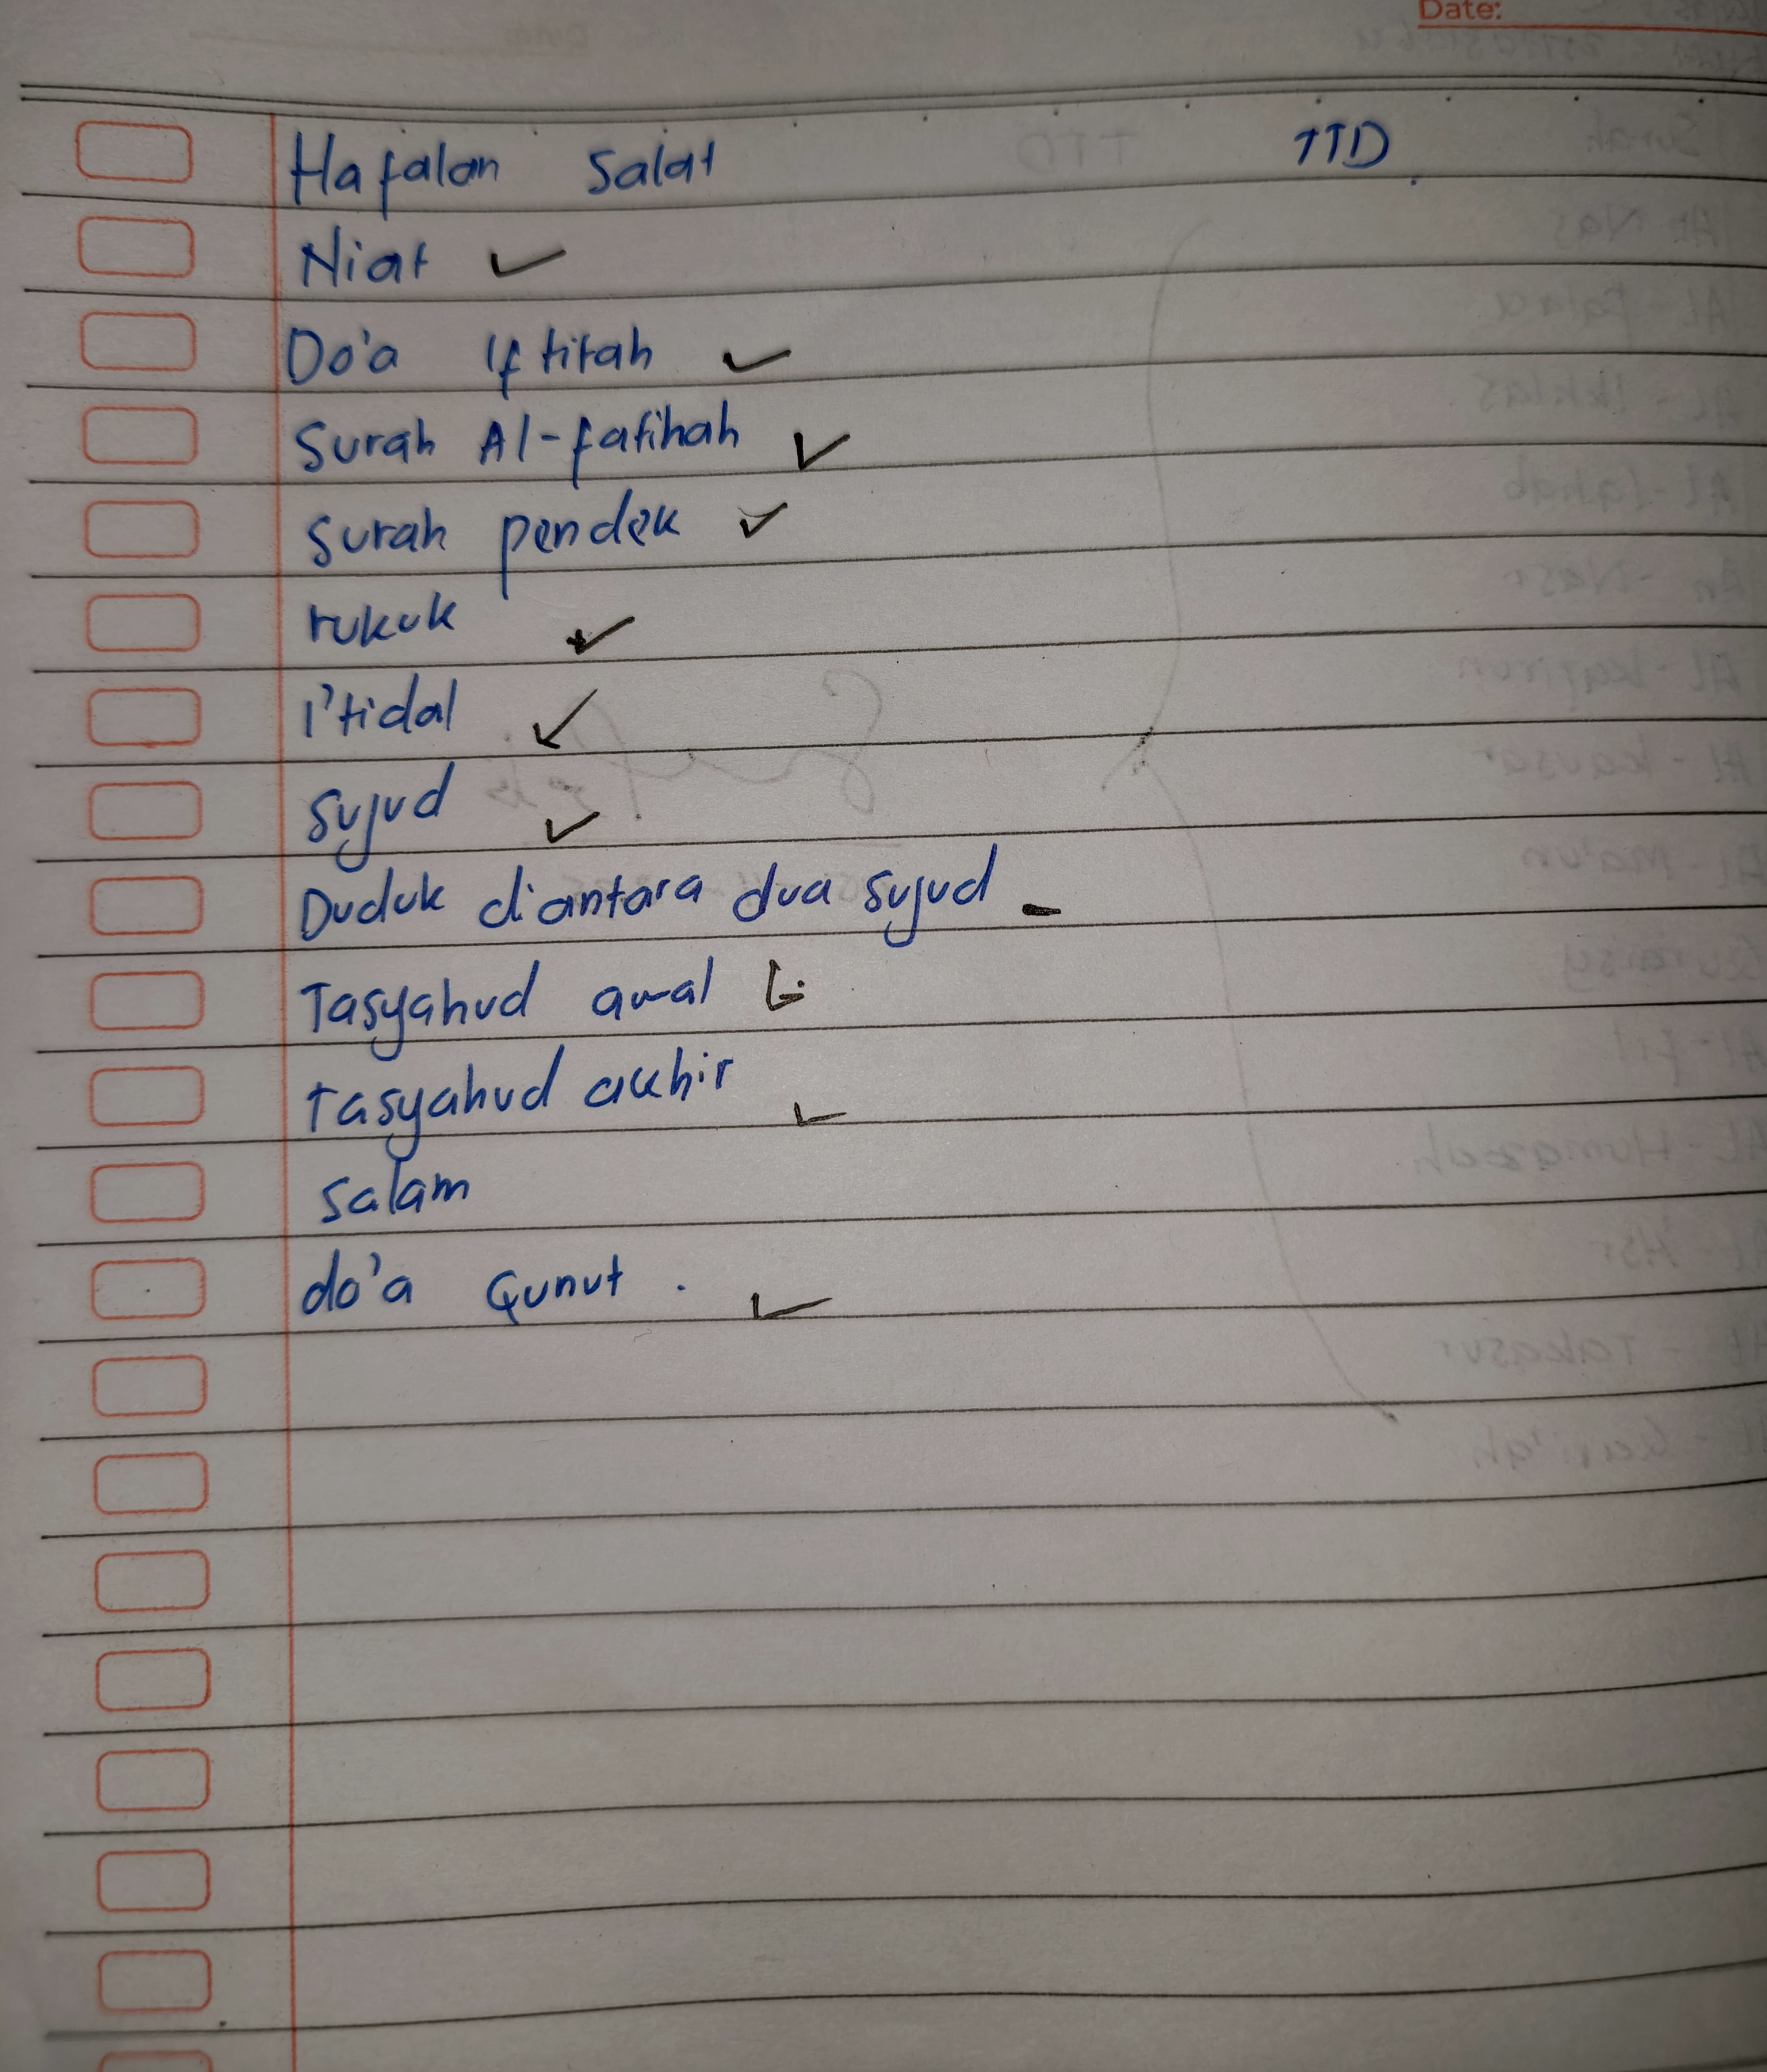 Date:
Hafalan Salat TTD
Niat ✓
Do'a Iftitah ✓
Surah Al-fatihah ✓
Surah pendek ✓
rukuk ✓
I'tidal ✓
sujud ✓
Duduk diantara dua sujud -
Tasyahud awal
Tasyahud akhir ✓
salam
do'a Qunut . ✓